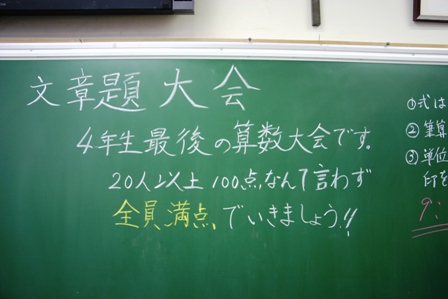 文章題大会
4年生最後の算数大会です。
20人以上100点なんて言わず
全員満点でいきましょう!!
①式は
②筆算
③単位
印を
9: